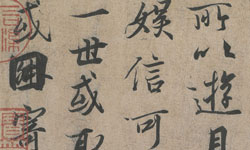 所以遊目
娛信可
一世或取
或因寄